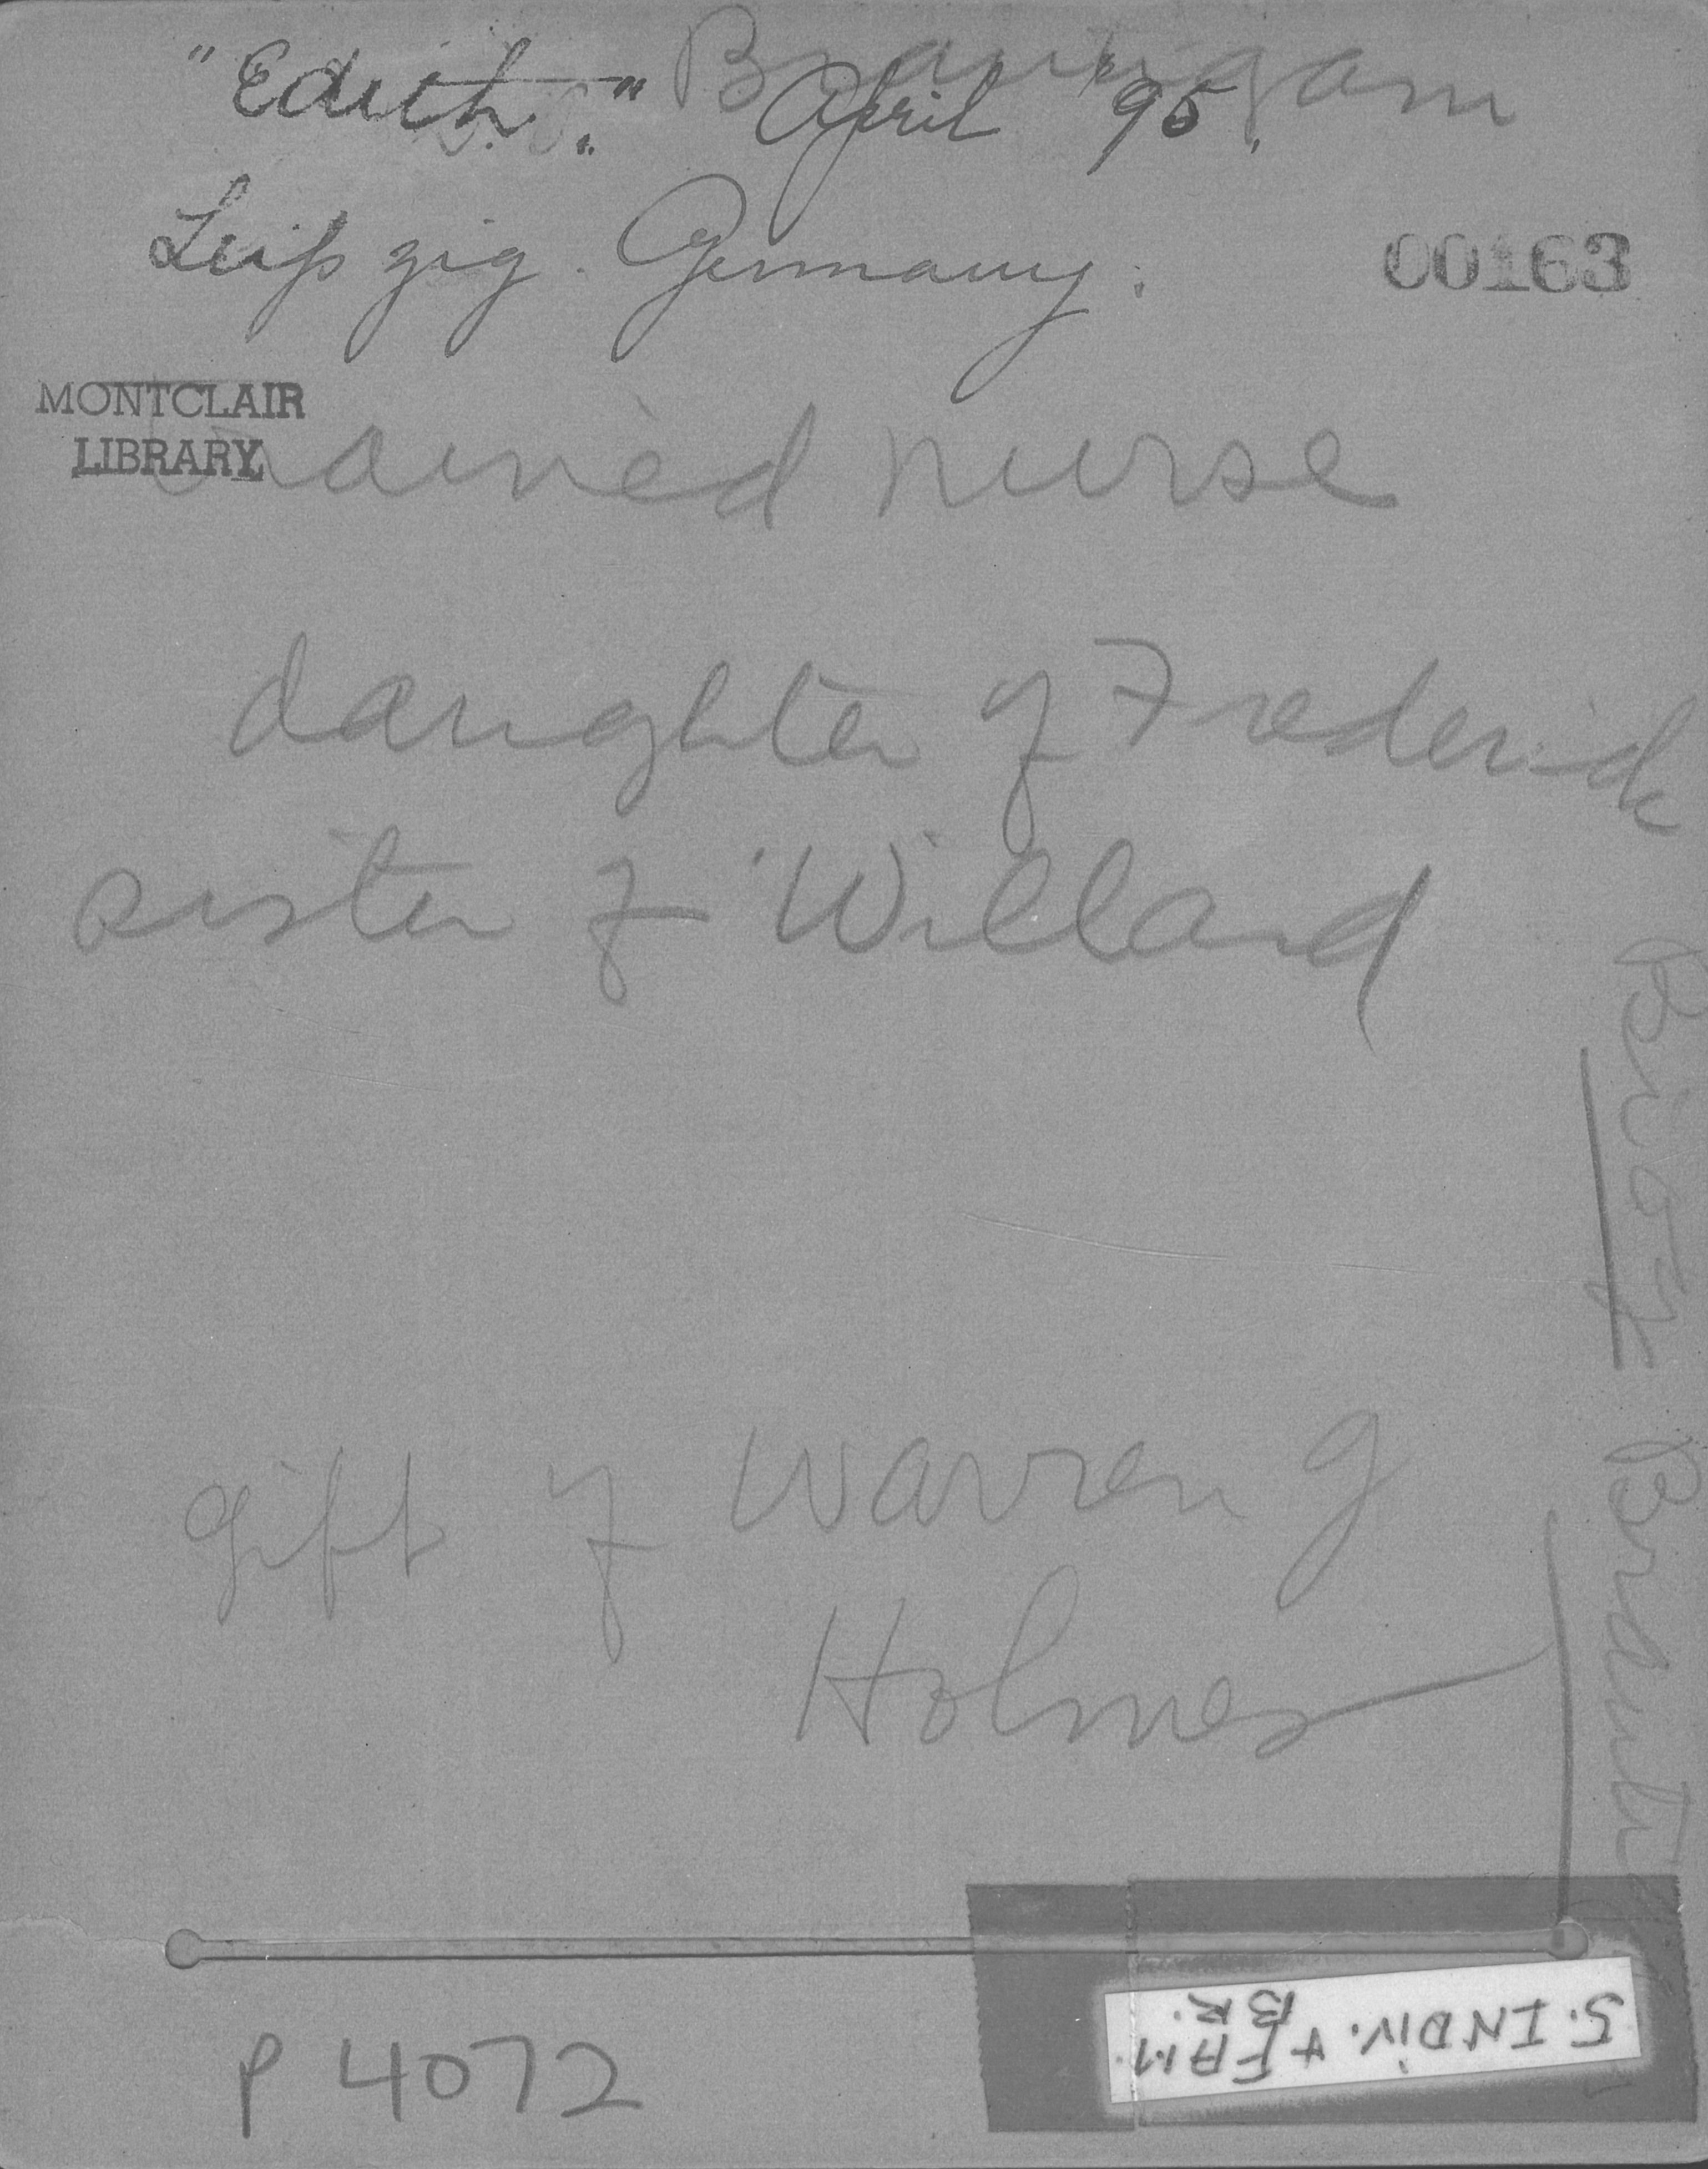 "Edith." Brautigam
April '95.
Leipzig. Germany.
00163
MONTCLAIR
LIBRARY
trained nurse
daughter of Frederick
sister of Willard
gift of Warren G
Holmes
P 4072
S. INDIV. + FAM.
BR.